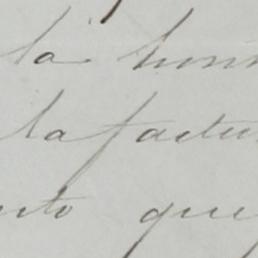 la honr
la factu
nto que